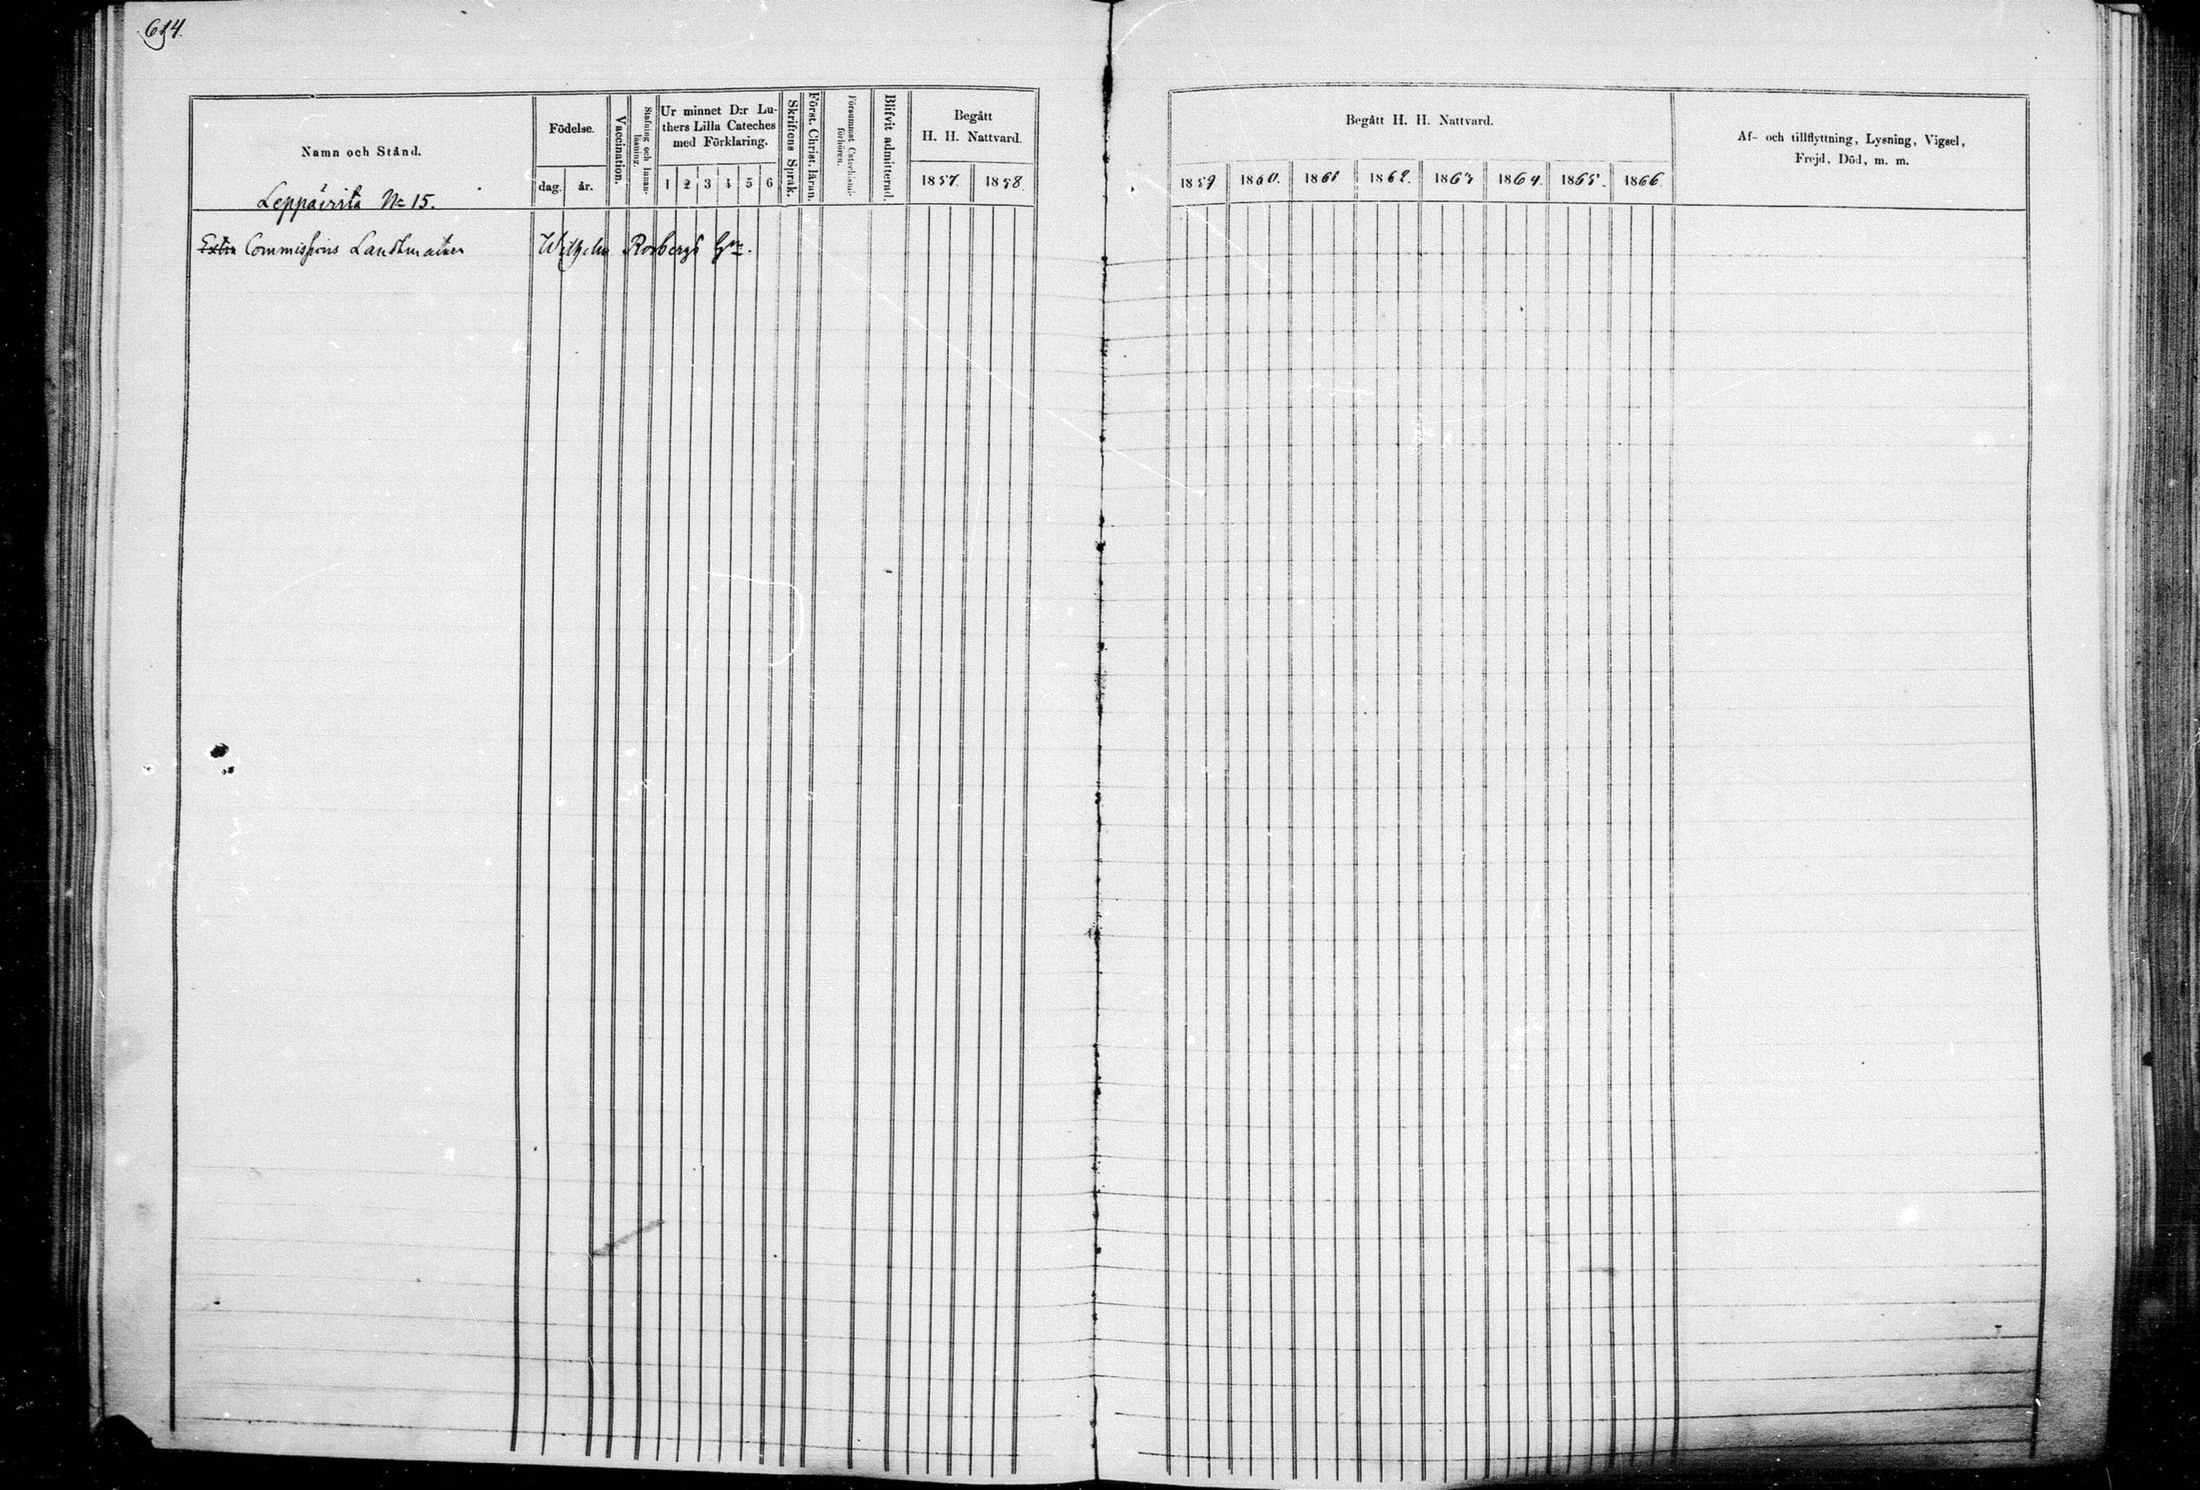 614.
Namn och Stånd.
Leppävirta No 15.
Födelse.
dag. år.
Vaccination.
Stafning och Innan-
läsning.
Ur minnet D:r Lu-
thers Lilla Cateches
med Förklaring.
1 2 3 4 5 6
Skriftens Språk.
Först. Christ. läran.
Försummat Catechismi-
förhören.
Blifvit admitterad.
Begått
H. H. Nattvard.
1857. 1858.
Commissions Landtmätare Wilhelm Rosbergs
Begått H. H. Nattvard.
1859 1860. 1861 1862. 1863 1864. 1865. 1866.
Af- och tillflyttning, Lysning, Vigsel,
Frejd, Död, m. m.